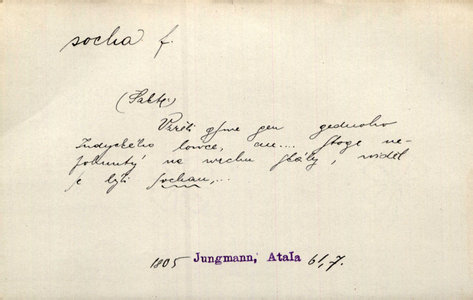 socha f.
(Šakt.)
Uzřeli gsme gen gednoho
Indyckého lowce, an... stoge ne-
pohnutý na wrchu skály, widěl
se býti sochau,...
1805 Jungmann, Atala 61,7.